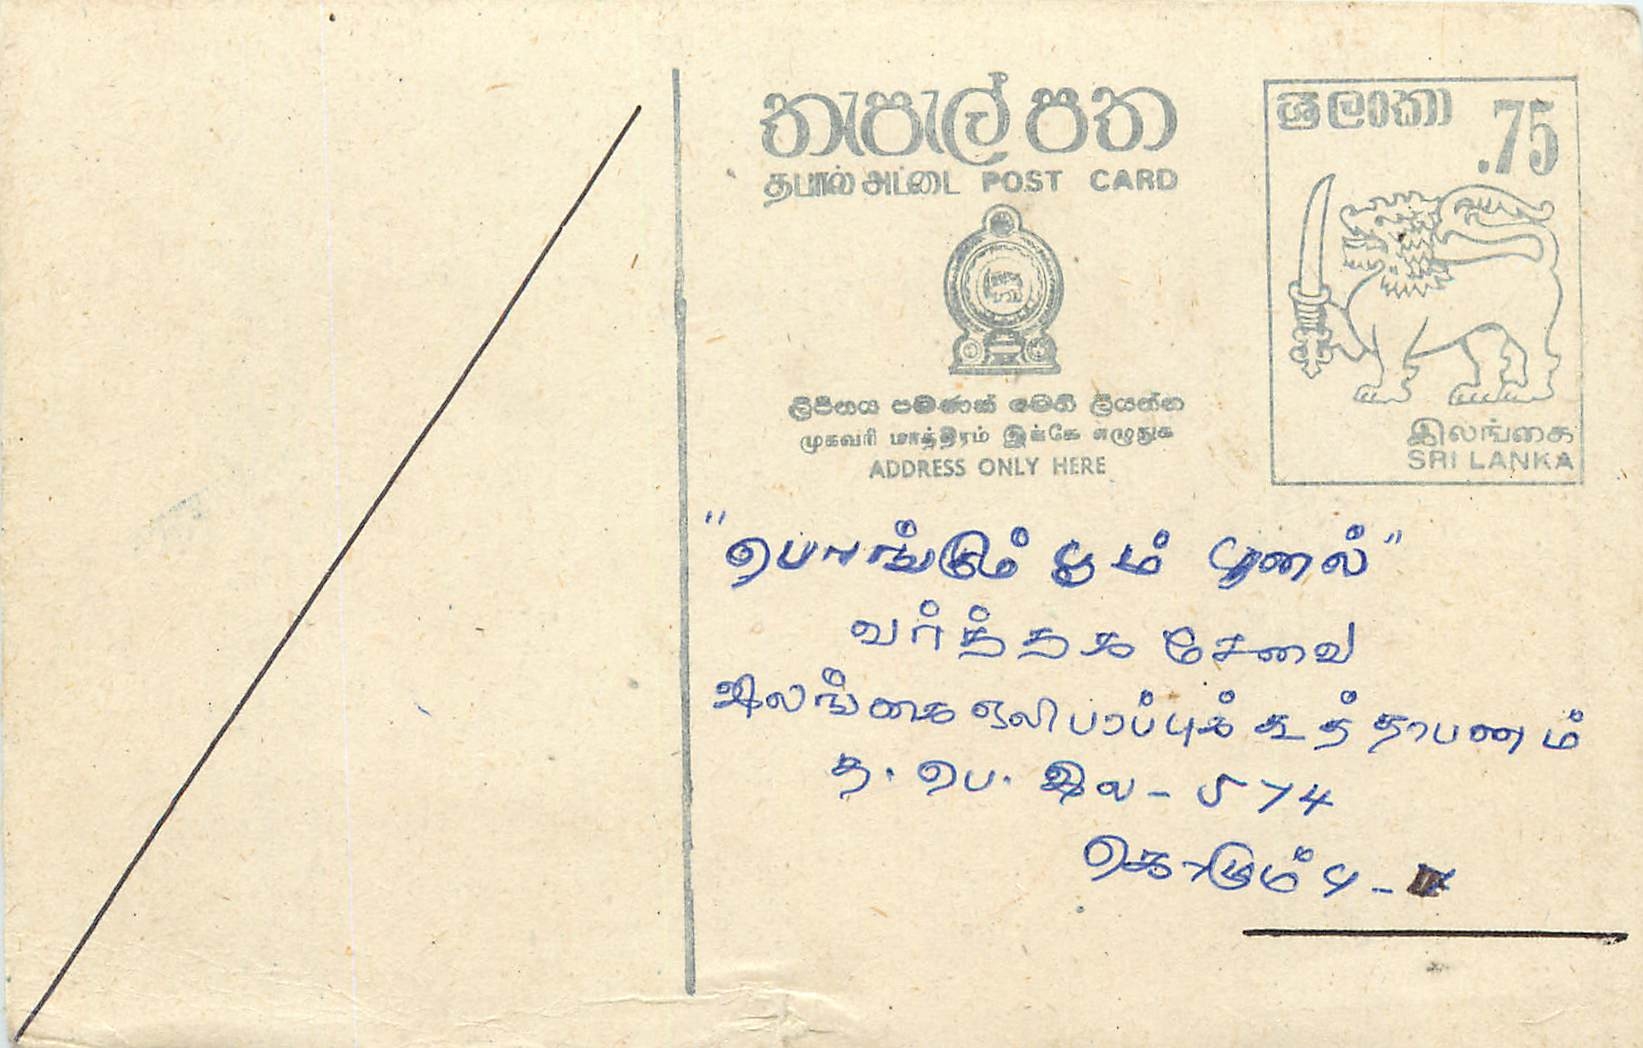 තැපැල් පත
தபால் அட்டை POST CARD
ශ්‍රී ලංකා .75
ලිපිනය පමණක් මෙහි ලියන්න
முகவரி மாத்திரம் இங்கே எழுதுக
ADDRESS ONLY HERE
இலங்கை
SRI LANKA
"பொங்கும் பூம் புனல்"
வர்த்தக சேவை
இலங்கை ஒலிபரப்புக் கூத்தாபனம்
த. பெ. இல - 574
கொழும்பு -